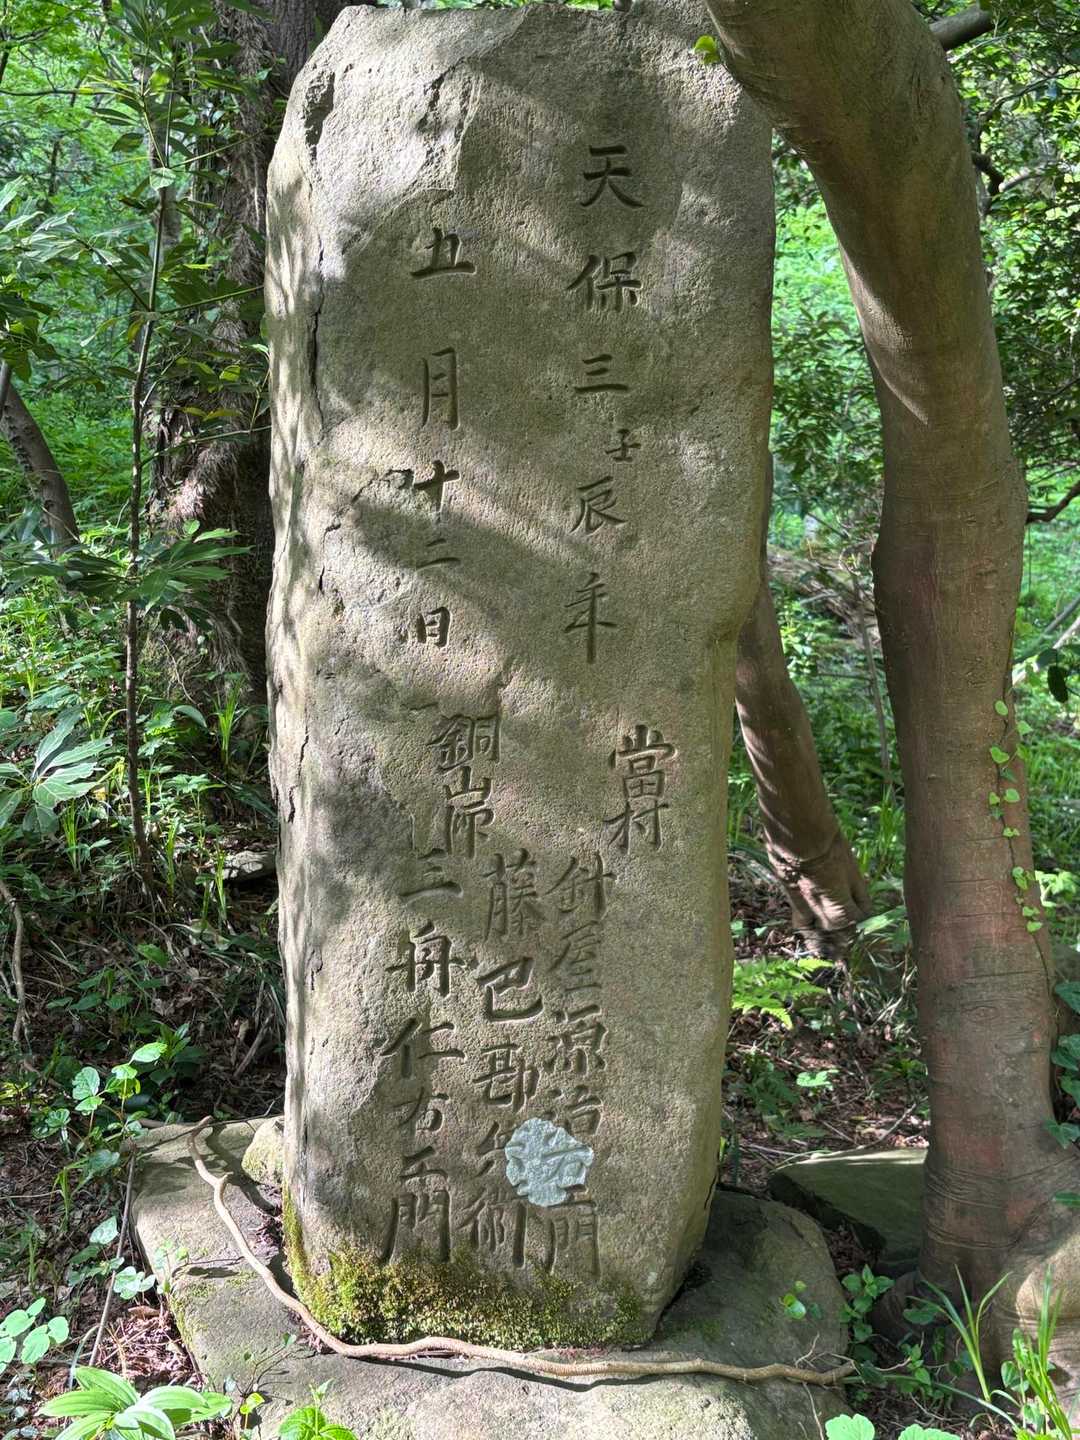 天保三壬辰年
五月十二日
當村
針屋源治右エ門
銅山師
藤巴勘兵衛
三舟仁右エ門